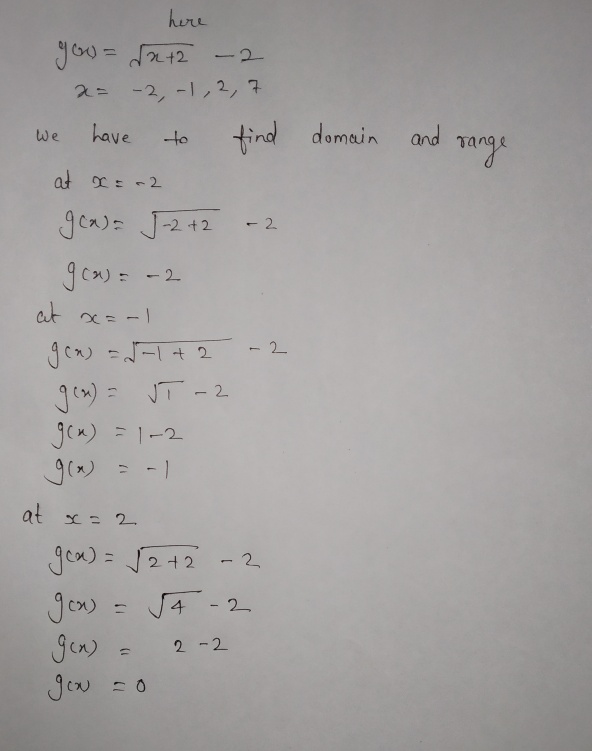 here
g(x) = √x+2 - 2
x = -2, -1, 2, 7
we have to find domain and range
at x = -2
g(x) = √-2+2 - 2
g(x) = -2
at x = -1
g(x) = √-1+2 - 2
g(x) = √1 - 2
g(x) = 1-2
g(x) = -1
at x = 2
g(x) = √2+2 - 2
g(x) = √4 - 2
g(x) = 2-2
g(x) = 0